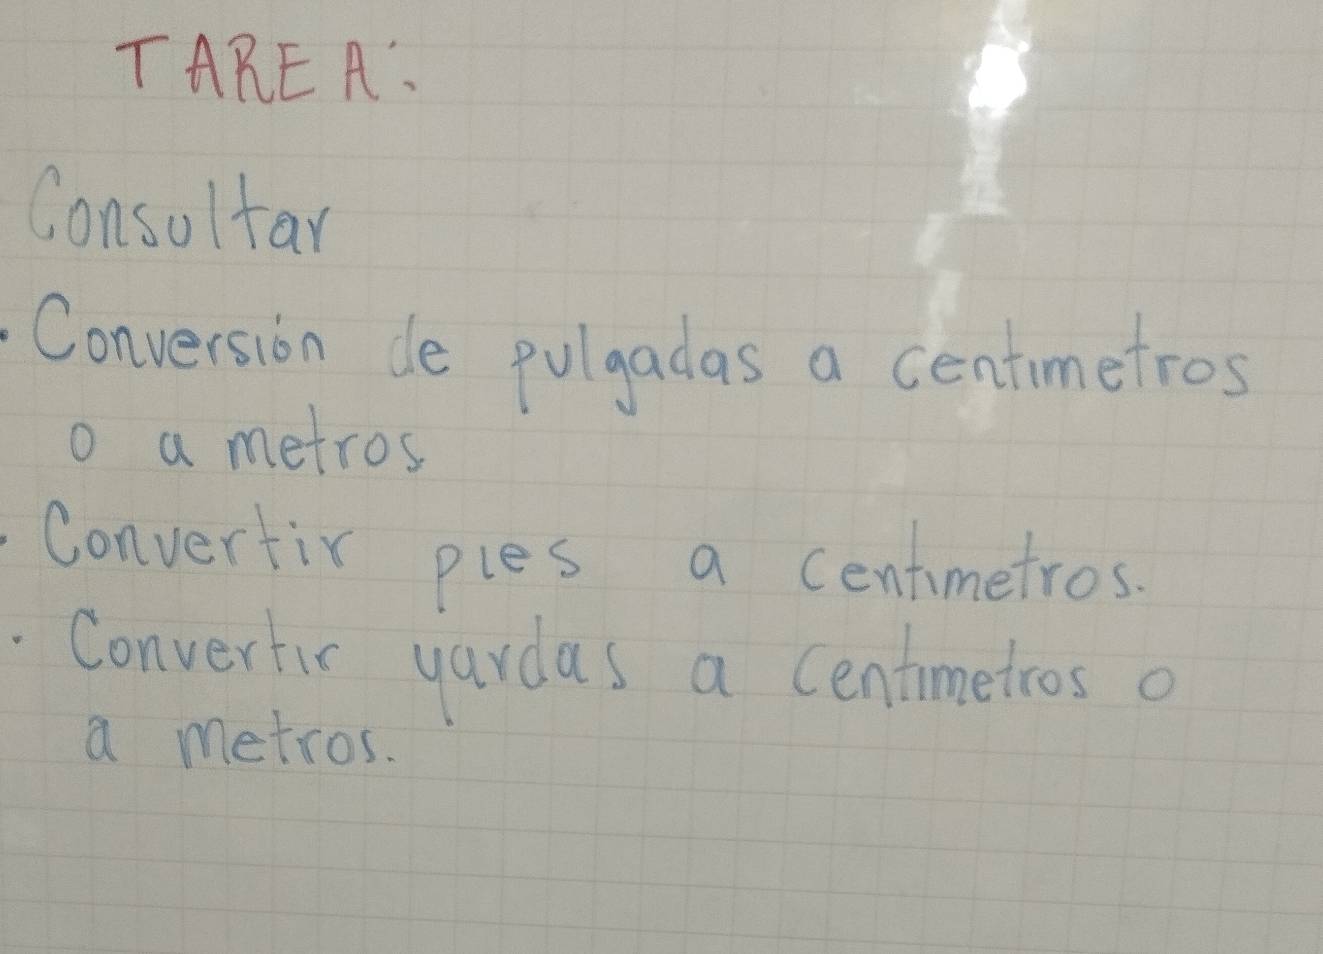 TAREA:
Consultar
. Conversión de pulgadas a centimetros
o a metros
. Convertir pies a centimetros.
. Convertir yardas a centimetros o
a metros.